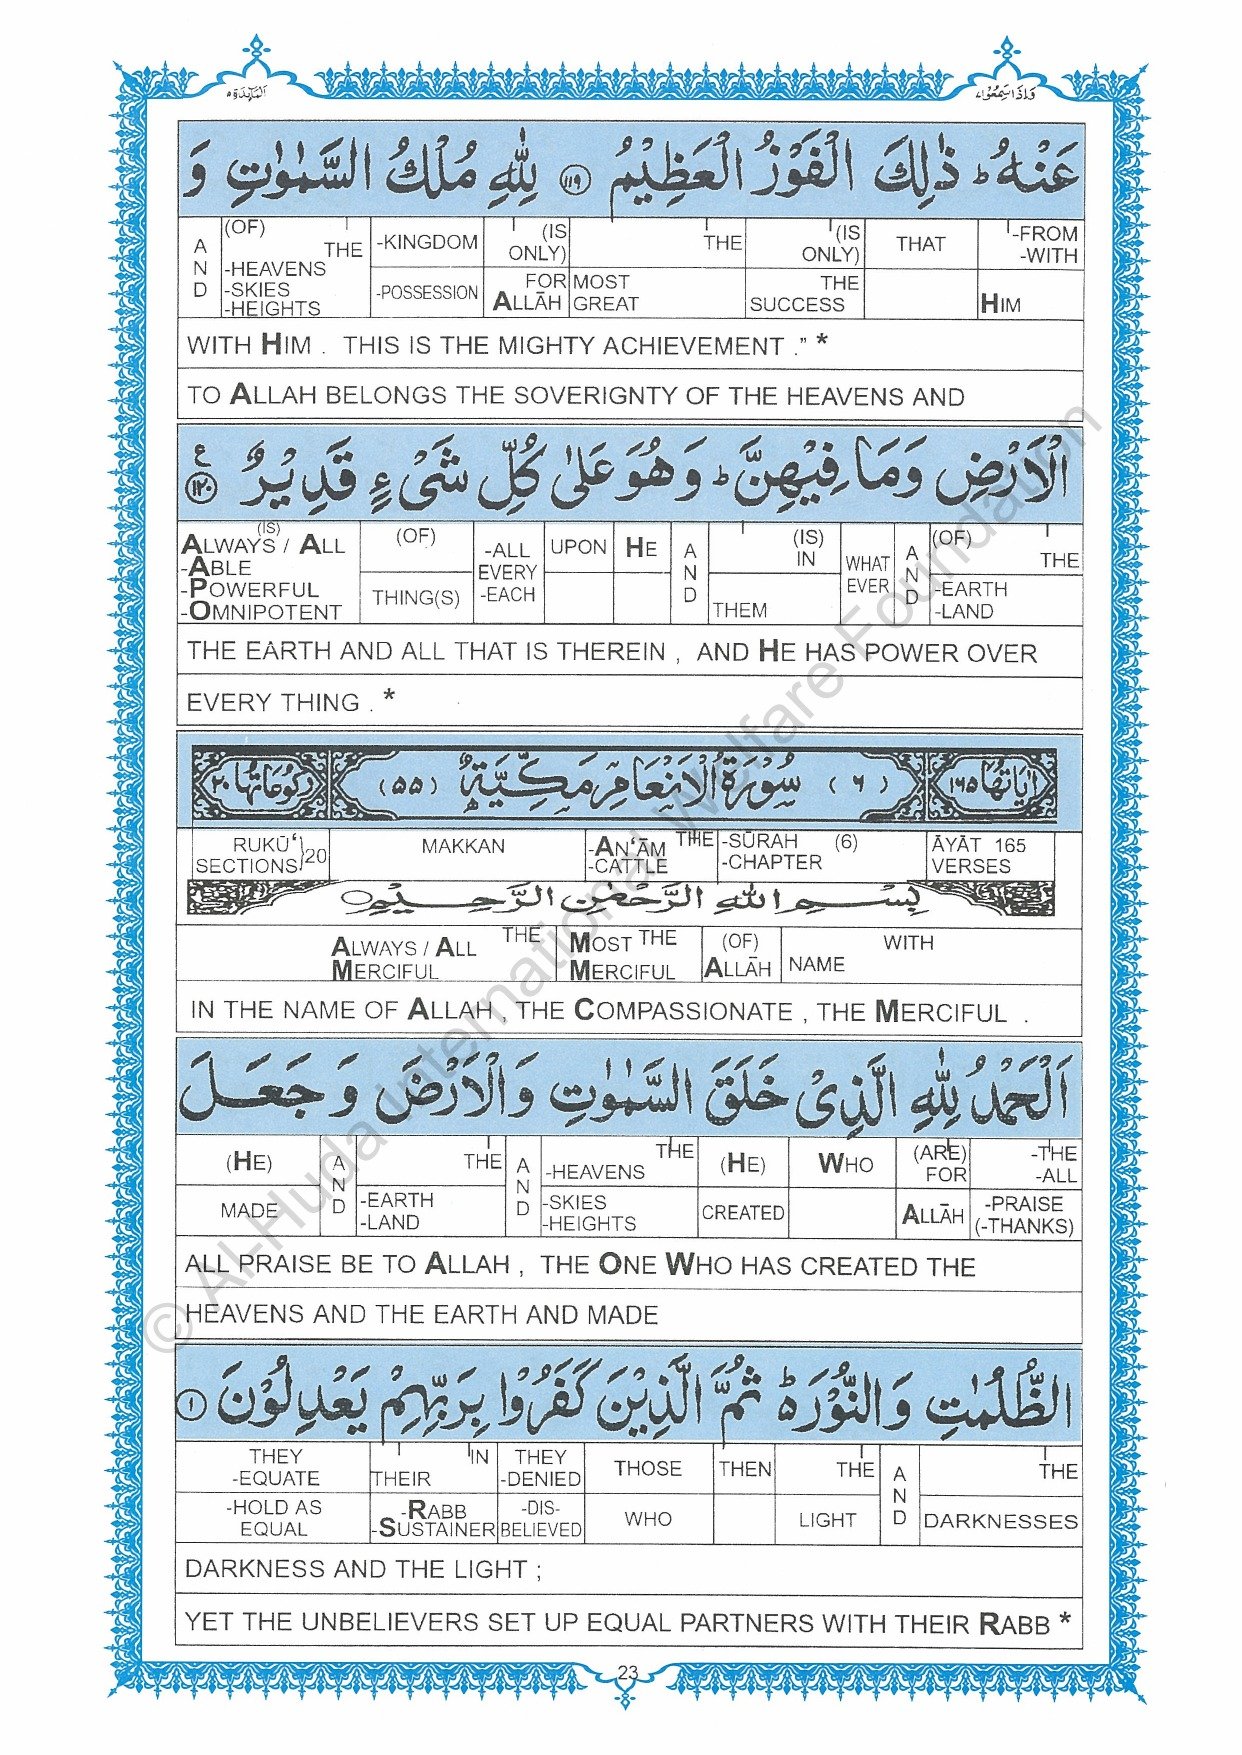 وَإِذَا سَمِعُوا ٧
الْمَآئِدَة ٥
عَنْهُ ؕ ذٰلِكَ الْفَوْزُ الْعَظِیْمُ ﴿۱۱۹﴾ لِلّٰهِ مُلْكُ السَّمٰوٰتِ وَ
-FROM -WITH HIM | THAT | (IS ONLY) THE SUCCESS | THE MOST GREAT | (IS ONLY) FOR ALLĀH | -KINGDOM -POSSESSION | (OF) THE -HEAVENS -SKIES -HEIGHTS | AND
WITH HIM . THIS IS THE MIGHTY ACHIEVEMENT .” *
TO ALLAH BELONGS THE SOVERIGNTY OF THE HEAVENS AND
الْاَرْضِ وَمَا فِیْهِنَّ ؕ وَهُوَ عَلٰی كُلِّ شَیْءٍ قَدِیْرٌ ﴿۱۲۰﴾ ع
(OF) THE -EARTH -LAND | AND | WHAT EVER | (IS) IN THEM | AND | HE | UPON | -ALL EVERY -EACH | (OF) THING(S) | (IS) ALWAYS / ALL -ABLE -POWERFUL -OMNIPOTENT
THE EARTH AND ALL THAT IS THEREIN , AND HE HAS POWER OVER
EVERY THING . *
اٰیَاتُهَا ۱۶۵ (۶) سُوْرَةُ الْاَنْعَامِ مَكِّیَّةٌ (۵۵) رُكُوْعَاتُهَا ۲۰
ĀYĀT 165 VERSES | -SŪRAH (6) -CHAPTER | THE -AN‘ĀM -CATTLE | MAKKAN | RUKŪ‘ SECTIONS 20
بِسْمِ اللهِ الرَّحْمٰنِ الرَّحِیْمِ
WITH NAME | (OF) ALLĀH | THE MOST MERCIFUL | THE ALWAYS / ALL MERCIFUL
IN THE NAME OF ALLAH , THE COMPASSIONATE , THE MERCIFUL .
اَلْحَمْدُ لِلّٰهِ الَّذِیْ خَلَقَ السَّمٰوٰتِ وَالْاَرْضَ وَ جَعَلَ
-THE -ALL -PRAISE (-THANKS) | (ARE) FOR ALLĀH | WHO | (HE) CREATED | THE -HEAVENS -SKIES -HEIGHTS | AND | THE -EARTH -LAND | AND | (HE) MADE
ALL PRAISE BE TO ALLAH , THE ONE WHO HAS CREATED THE
HEAVENS AND THE EARTH AND MADE
الظُّلُمٰتِ وَالنُّوْرَ ؕ ثُمَّ الَّذِیْنَ كَفَرُوْا بِرَبِّهِمْ یَعْدِلُوْنَ ﴿۱﴾
THE DARKNESSES | AND | THE LIGHT | THEN | THOSE WHO | THEY -DENIED -DIS- BELIEVED | IN THEIR -RABB -SUSTAINER | THEY -EQUATE -HOLD AS EQUAL
DARKNESS AND THE LIGHT ;
YET THE UNBELIEVERS SET UP EQUAL PARTNERS WITH THEIR RABB *
23
© Al-Huda International Welfare Foundation